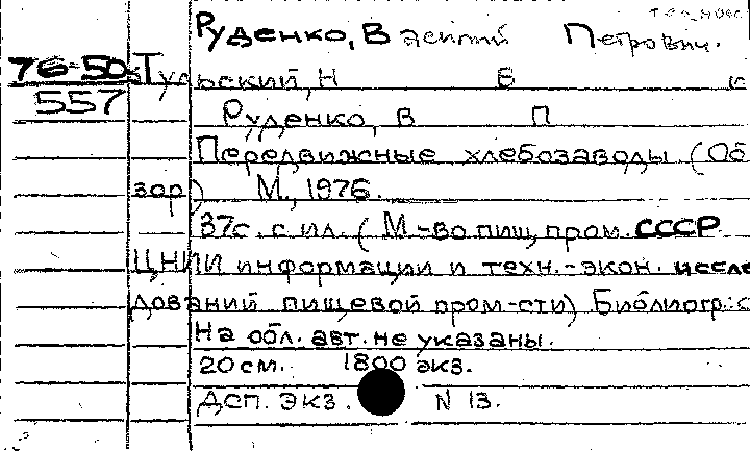 Руденко, Василий Петрович.
76-50
557
Тульский, Н Б
Руденко, В П
Передвижные хлебозаводы. (Об
зор) М., 1976.
37с. с ил. (М-во пищ. пром. СССР
ЦНИИ информации и техн.-экон. иссле
дований пищевой пром-сти) Библиогр.: с
На обл. авт. не указаны.
20 см. 1800 экз.
Дсп. Экз. N 13.